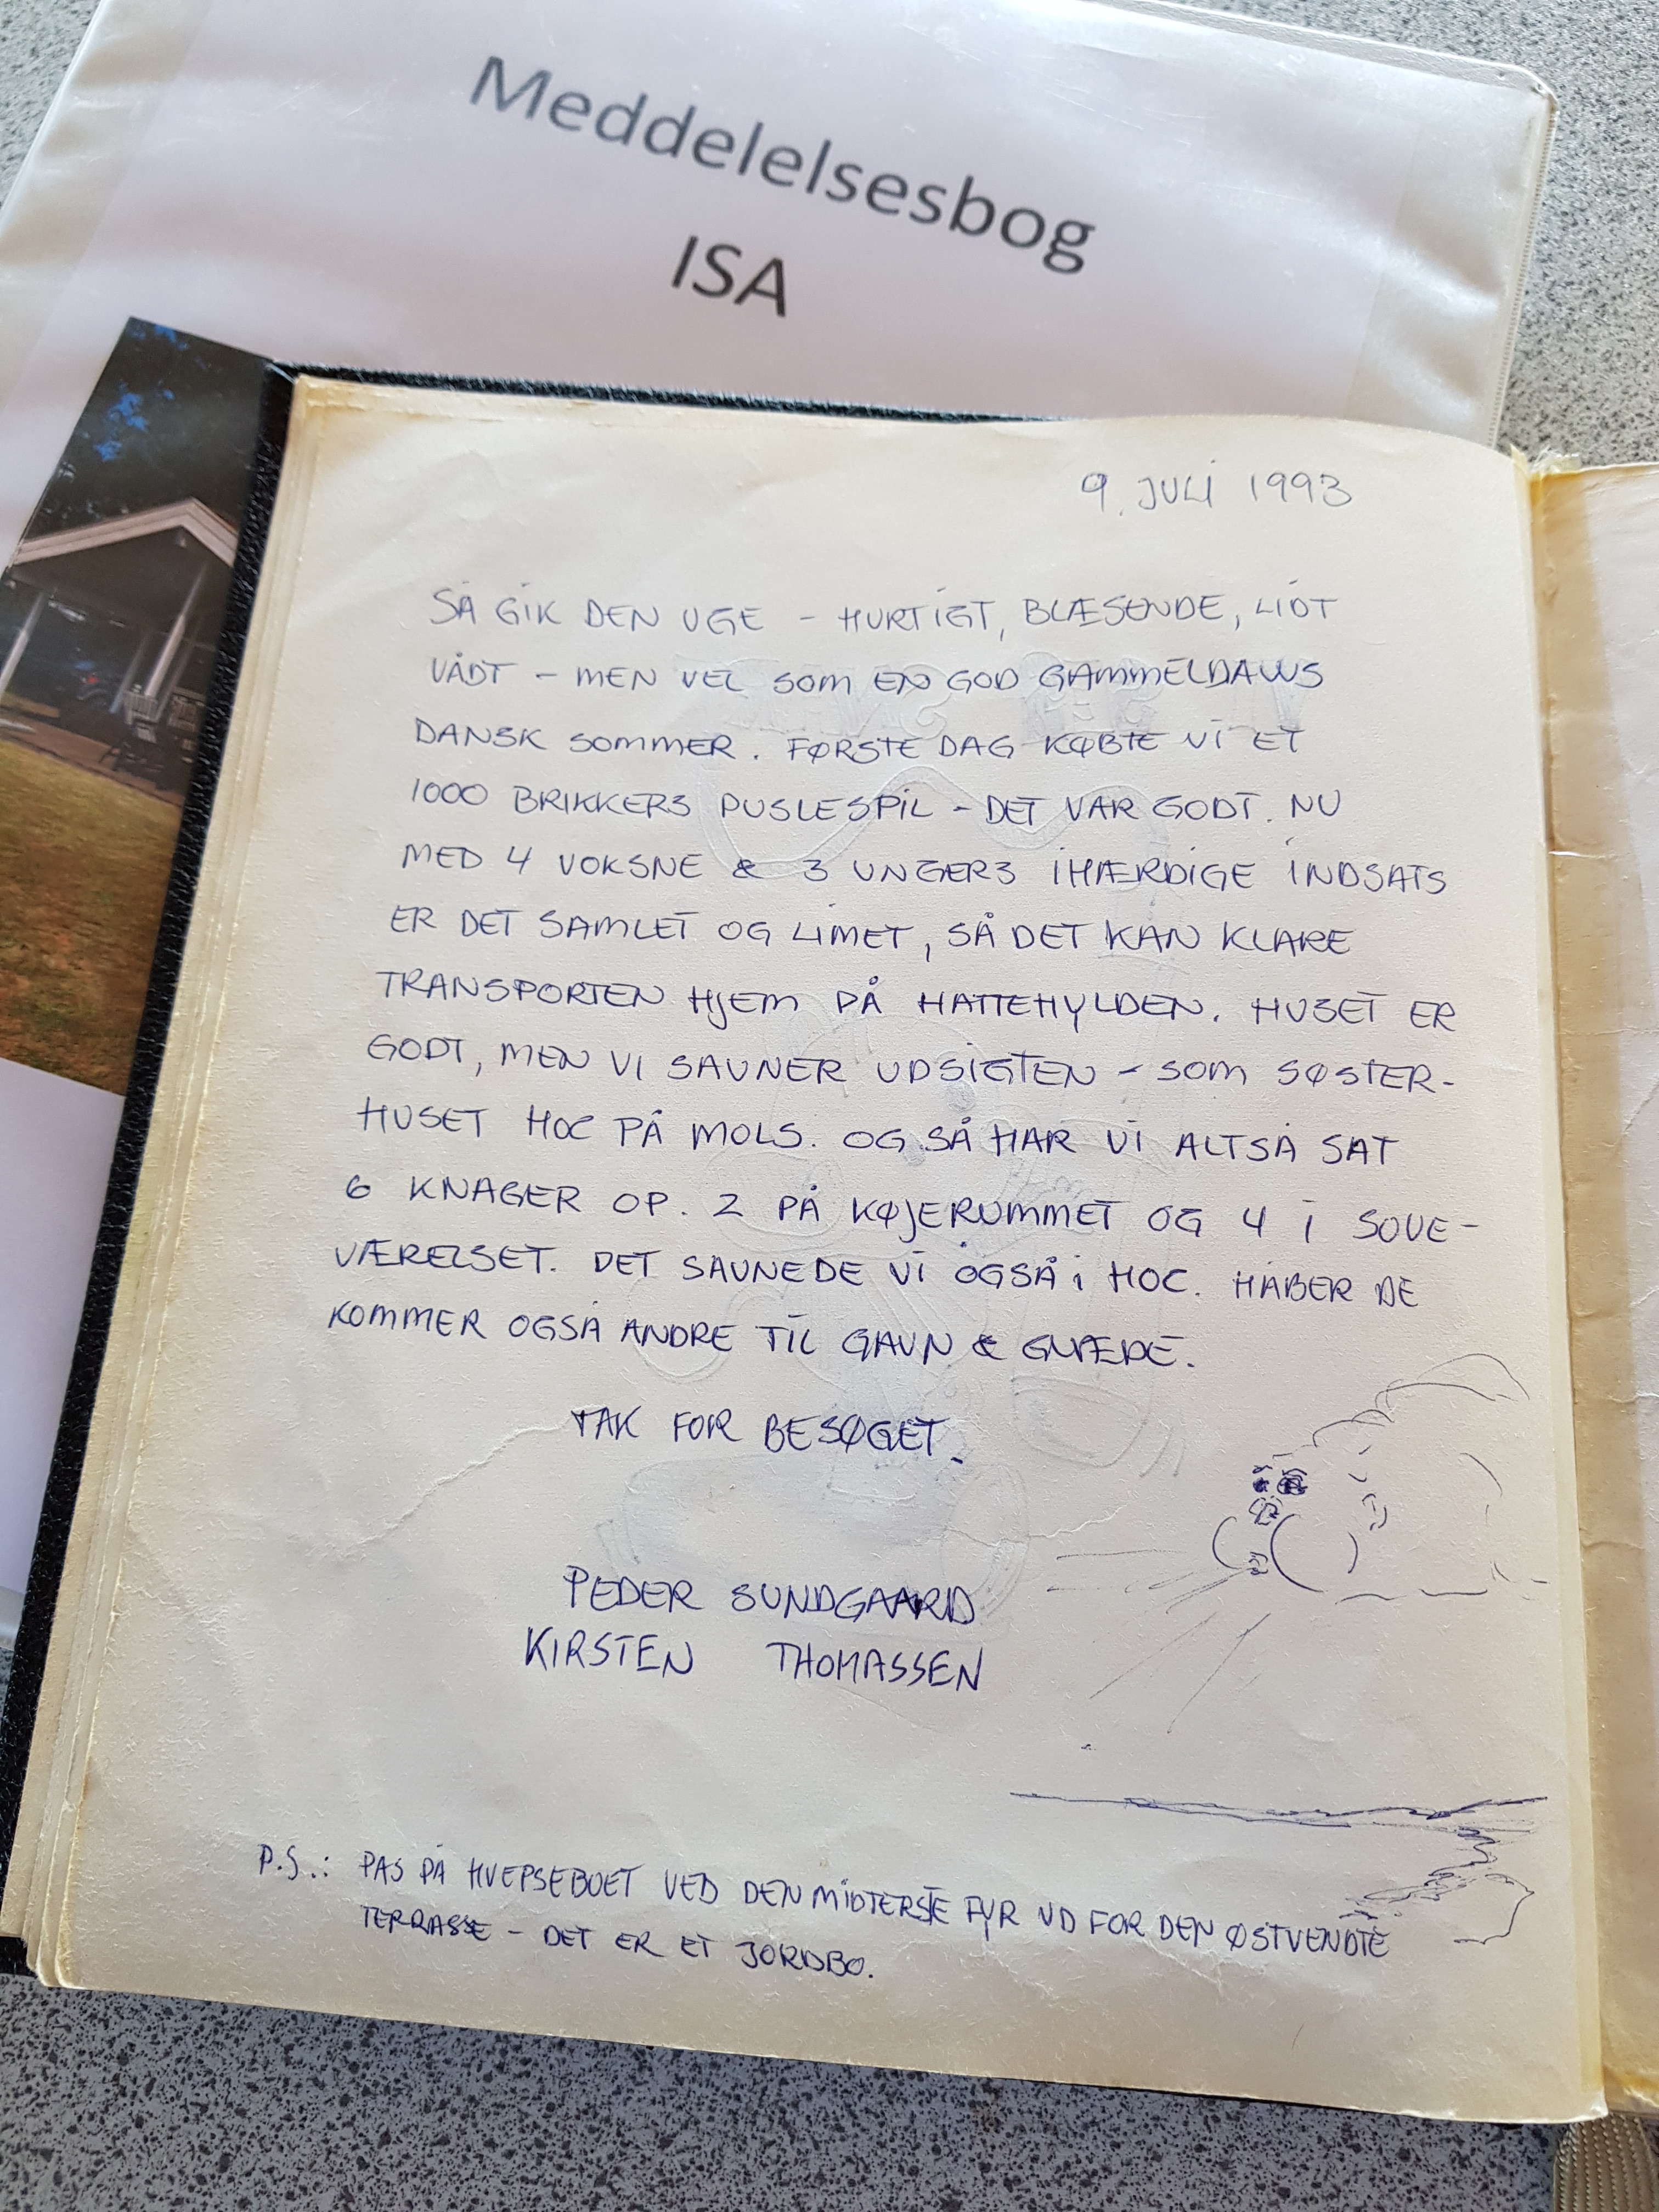 Meddelelsesbog
ISA
9. JULI 1993
SÅ GIK DEN UGE - HURTIGT, BLÆSENDE, LIDT
VÅDT - MEN VEL SOM EN GOD GAMMELDAWS
DANSK SOMMER. FØRSTE DAG KØBTE VI ET
1000 BRIKKERS PUSLESPIL - DET VAR GODT. NU
MED 4 VOKSNE & 3 UNGERS IHÆRDIGE INDSATS
ER DET SAMLET OG LIMET, SÅ DET KAN KLARE
TRANSPORTEN HJEM PÅ HATTEHYLDEN. HUSET ER
GODT, MEN VI SAVNER UDSIGTEN - SOM SØSTER-
HUSET HOC PÅ MOLS. OG SÅ HAR VI ALTSÅ SAT
6 KNAGER OP. 2 PÅ KØJERUMMET OG 4 I SOVE-
VÆRELSET. DET SAVNEDE VI OGSÅ i HOC. HÅBER DE
KOMMER OGSÅ ANDRE TIL GAVN & GLÆDE.
TAK FOR BESØGET.
PEDER SUNDGAARD
KIRSTEN THOMASSEN
P.S.: PAS PÅ HVEPSEBOET VED DEN MIDTERSTE FYR UD FOR DEN ØSTVENDTE
TERRASSE - DET ER ET JORDBO.